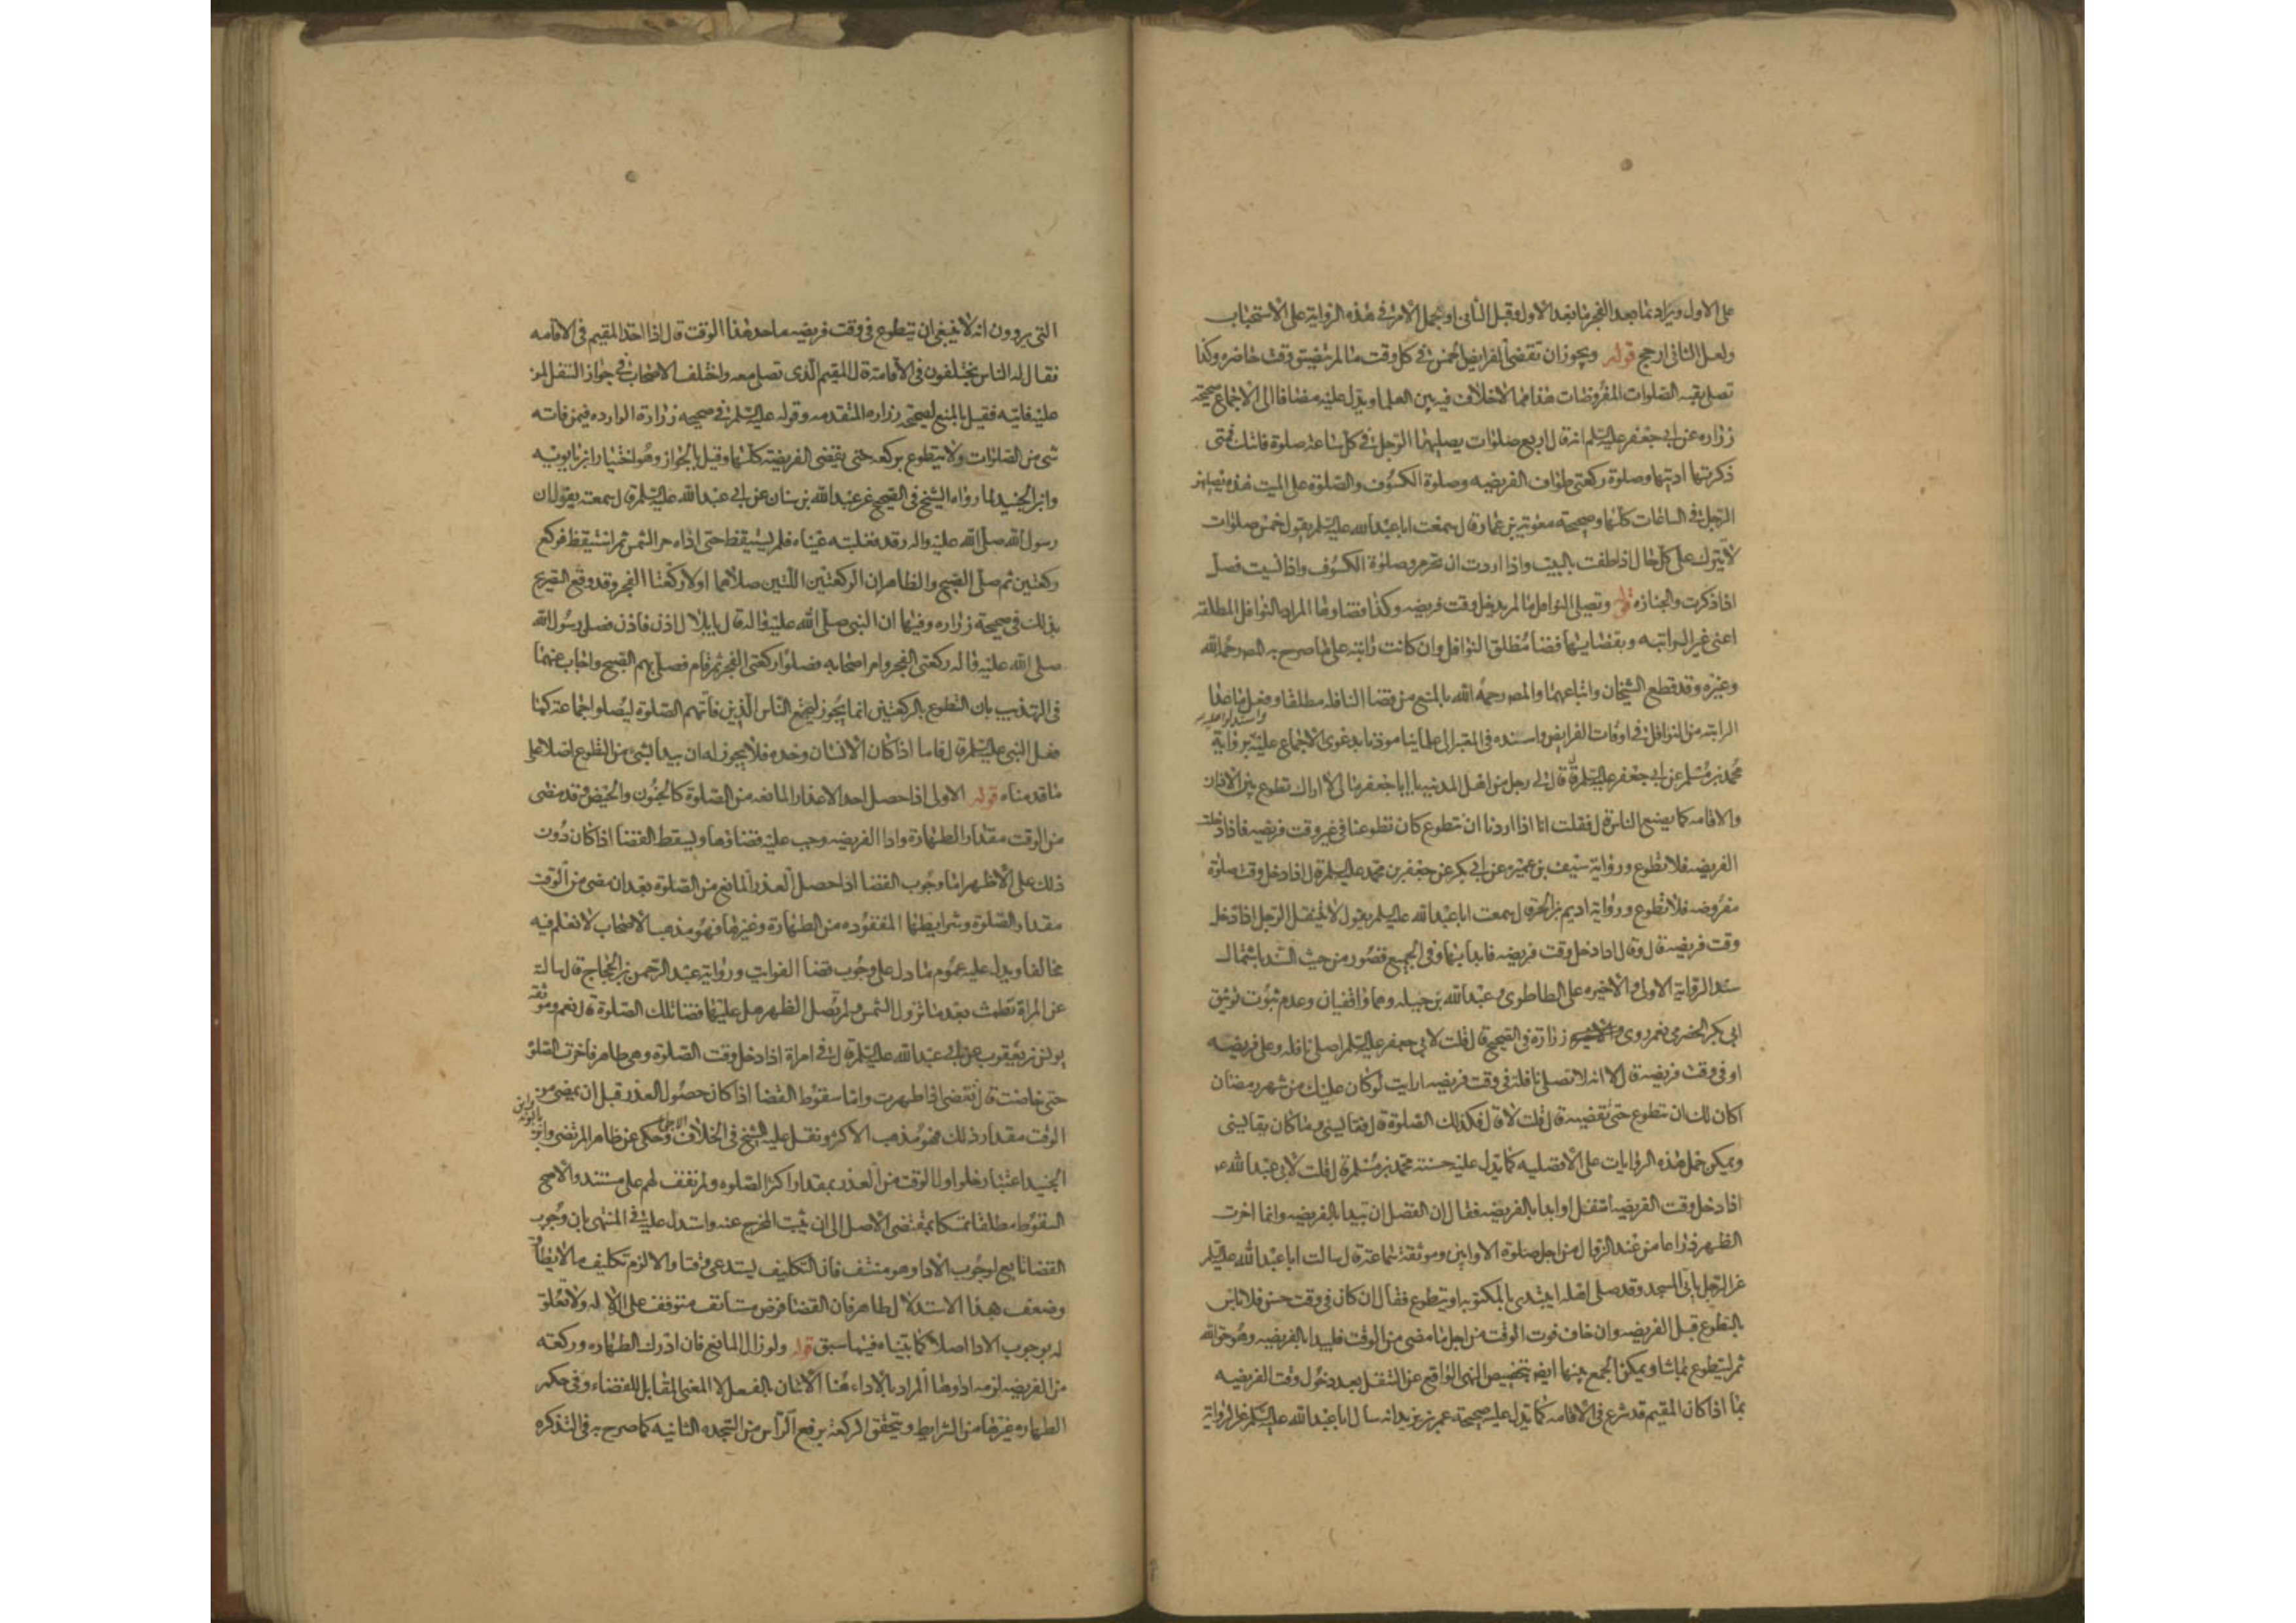 على الاول ويراد بما بعد الفجر ما بعد الاول وقبل الثانى او يحمل الامر فى هذه الرواية على الاستحباب
ولعل الثانى ارجح قوله ويجوز ان تقضى الفرايض الخمس فى كل وقت ما لم يتضيق وقت حاضره وكذا
تصلى بقيه الصلوات المفروضات هذا مما لا خلاف فيه بين العلما ويدل عليه مضافا الى الاجماع صحيحة
زراره عن ابى جعفر عليه السلم انه قال اربع صلوات يصليها الرجل فى كل ساعة صلوة فاتتك فمتى
ذكرتها اديتها وصلوة ركعتى طواف الفريضه وصلوة الكسوف والصلوة على الميت هذه يصليهن
الرجل فى الساعات كلها وصحيحة معوية بن عمار قال سمعت ابا عبد الله عليه السلم يقول خمس صلوات
لا يترك على كل حال اذا طفت بالبيت واذا اردت ان تحرم وصلوة الكسوف واذا نسيت فصل
اذا ذكرت والجنازه قوله وتصلى النوافل ما لم يدخل وقت فريضه وكذا قضاوها المراد بالنوافل المطلقه
اعنى غير الراتبه وبقضايها قضا مطلق النوافل وان كانت راتبه على ما صرح به المص رحمه الله
وغيره وقد قطع الشيخان واتباعهما والمص رحمه الله بالمنع من قضا النافله مطلقا وفعل ما عدا
الراتبه من النوافل فى اوقات الفرايض واسنده فى المعتبر الى علمائنا موذنا بدعوى الاجماع عليه برواية
واستدلوا عليه
محمد بن مسلم عن ابى جعفر عليه السلم قال قال لى رجل من اهل المدينه يا ابا جعفر مالى لا اراك تطوع بين الاذان
والاقامه كما يصنع الناس قال فقلت انا اذا اردنا ان نتطوع كان تطوعنا فى غير وقت فريضه فاذا دخلت
الفريضه فلا تطوع ورواية سيف بن عميره عن ابى بكر عن جعفر بن محمد عليه السلم قال اذا دخل وقت صلوة
مفروضه فلا تطوع ورواية اديم بن الحر قال سمعت ابا عبد الله عليه السلم يقول لا يتنفل الرجل اذا دخل
وقت فريضة قال وقال اذا دخل وقت فريضه فابدا بها وفى الجميع قصور من حيث السند باشتمال
سند الرواية الاولى والاخيره على الطاطرى وعبد الله بن جبله وهما واقفيان وعدم ثبوت توثيق
ابى بكر الحضرمى نعم روى زرارة فى الصحيح قال قلت لابى جعفر عليه السلم اصلى نافله وعلى فريضه
او فى وقت فريضة قال لا انه لا تصلى نافلة فى وقت فريضه ارايت لو كان عليك من شهر رمضان
اكان لك ان تتطوع حتى تقضيه قال قلت لا قال فكذلك الصلوة قال فقايسنى وما كان يقايسنى
ويمكن حمل هذه الروايات على الافضليه كما يدل عليه حسنة محمد بن مسلم قال قلت لابى عبد الله ع
اذا دخل وقت الفريضه اتنفل او ابدا بالفريضه فقال ان الفضل ان تبدا بالفريضه وانما اخرت
الظهر ذراعا من عند الزوال من اجل صلوة الاوابين وموثقة سماعة قال سالت ابا عبد الله عليه السلم
عن الرجل ياتى المسجد وقد صلى اهله ايبتدى بالمكتوبه او يتطوع فقال ان كان فى وقت حسن فلا باس
بالتطوع قبل الفريضه وان خاف فوت الوقت من اجل ما مضى من الوقت فليبدا بالفريضه وهو حق الله
ثم ليتطوع بما شا ويمكن الجمع بينها ايضا بتخصيص النهى الواقع عن التنفل بعد دخول وقت الفريضه
بما اذا كان المقيم قد شرع فى الاقامه كما يدل عليه صحيحة عمر بن يزيد انه سال ابا عبد الله عليه السلم عن الرواية
التى يروون انه لا ينبغى ان يتطوع فى وقت فريضه ما حد هذا الوقت قال اذا اخذ المقيم فى الاقامه
فقال له الناس يختلفون فى الاقامة قال المقيم الذى تصلى معه واختلف الاصحاب فى جواز التنفل لمن
عليه فايته فقيل بالمنع لصحيحة زراره المتقدمه وقوله عليه السلم فى صحيحه زرارة الوارده فيمن فاته
شى من الصلوات ولا يتطوع بركعه حتى يقضى الفريضة كلها وقيل بالجواز وهو اختيار ابن بابويه
وابن الجنيد لما رواه الشيخ فى الصحيح عن عبد الله بن سنان عن ابى عبد الله عليه السلم قال سمعته يقول ان
رسول الله صلى الله عليه واله رقد فغلبته عيناه فلم يستيقظ حتى اذاه حر الشمس ثم استيقظ فركع
ركعتين ثم صلى الصبح والظاهر ان الركعتين اللتين صلاهما اولا ركعتا الفجر وقد وقع التصريح
بذلك فى صحيحة زراره وفيها ان النبى صلى الله عليه واله قال يا بلال اذن فاذن فصلى رسول الله
صلى الله عليه واله ركعتى الفجر وامر اصحابه فصلوا ركعتى الفجر ثم قام فصلى بهم الصبح واجاب عنهما
فى التهذيب بان التطوع بالركعتين انما يجوز ليجتمع الناس الذين فاتهم الصلوة ليصلوا جماعة كما
فعل النبى عليه السلم قال فاما اذا كان الانسان وحده فلا يجوز له ان يبدا بشى من التطوع اصلا على
ما قدمناه قوله الاولى اذا حصل احد الاعذار المانعه من الصلوة كالجنون والحيض وقد مضى
من الوقت مقدار الطهارة وادا الفريضه وجب عليه قضاوها ويسقط القضا اذا كان دون
ذلك على الاظهر اما وجوب القضا اذا حصل العذر المانع من الصلوة بعد ان مضى من الوقت
مقدار الصلوة وشرايطها المفقوده من الطهارة وغيرها فهو مذهب الاصحاب لا نعلم فيه
مخالفا ويدل عليه عموم ما دل على وجوب قضا الفوايت ورواية عبد الرحمن بن الحجاج قال سالته
عن المراة تطمث بعد ما تزول الشمس ولم تصل الظهر هل عليها قضا تلك الصلوة قال نعم وموثقة
يونس بن يعقوب عن ابى عبد الله عليه السلم قال فى امراة اذا دخل وقت الصلوة وهى طاهر فاخرت الصلوة
حتى حاضت قال تقضى اذا طهرت واما سقوط القضا اذا كان حصول العذر قبل ان يمضى من
الوقت مقدار ذلك فهو مذهب الاكثر ونقل عليه الشيخ فى الخلاف الاجماع وحكى عن ظاهر المرتضى وابن بابويه وابن
الجنيد اعتبار خلو اول الوقت من العذر بمقدار اكثر الصلوه ولم نقف لهم على مستند والاصح
السقوط مطلقا تمسكا بمقتضى الاصل الى ان يثبت المخرج عنه واستدل عليه فى المنتهى بان وجوب
القضا تابع لوجوب الادا وهو منتف فان التكليف يستدعى وقتا والا لزم تكليف ما لا يطاق
وضعف هذا الاستدلال ظاهر فان القضا فرض مستانف متوقف على الدلاله ولا تعلق
له بوجوب الادا اصلا كما بيناه فيما سبق قوله ولو زال المانع فان ادرك الطهاره وركعه
من الفريضه لزمه اداوها المراد بالاداء هنا الاتيان بالفعل لا المعنى المقابل للقضاء وفى حكم
الطهاره غيرها من الشرايط ويتحقق الركعة برفع الراس من السجده الثانيه كما صرح به فى التذكره